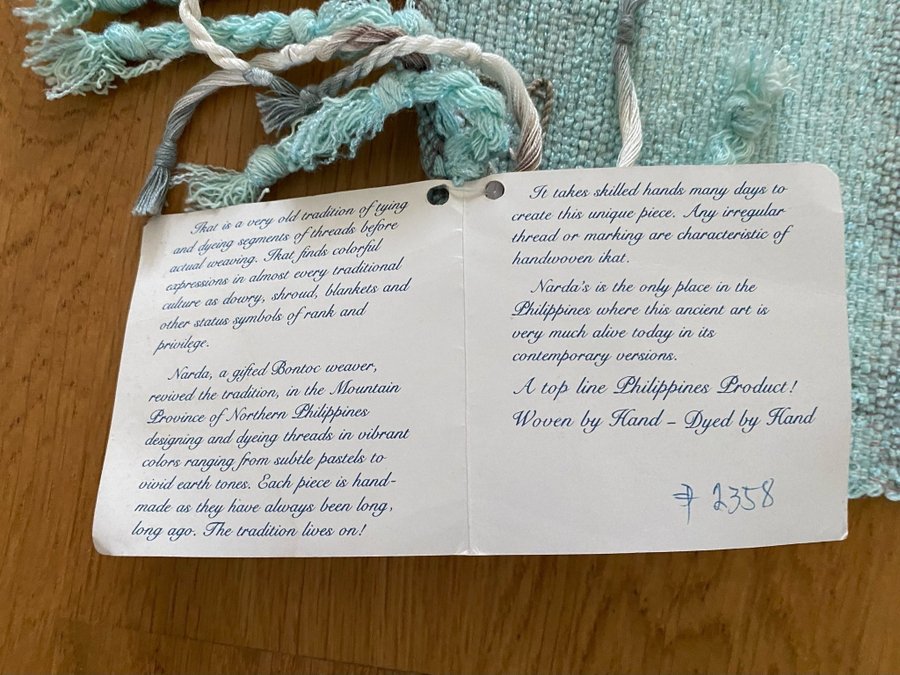 Ikat is a very old tradition of tying
and dyeing segments of threads before
actual weaving. Ikat finds colorful
expressions in almost every traditional
culture as dowry, shroud, blankets and
other status symbols of rank and
privilege.
Narda, a gifted Bontoc weaver,
revived the tradition, in the Mountain
Province of Northern Philippines
designing and dyeing threads in vibrant
colors ranging from subtle pastels to
vivid earth tones. Each piece is hand-
made as they have always been long,
long ago. The tradition lives on!
It takes skilled hands many days to
create this unique piece. Any irregular
thread or marking are characteristic of
handwoven ikat.
Narda's is the only place in the
Philippines where this ancient art is
very much alive today in its
contemporary versions.
A top line Philippines Product!
Woven by Hand – Dyed by Hand
# 2358